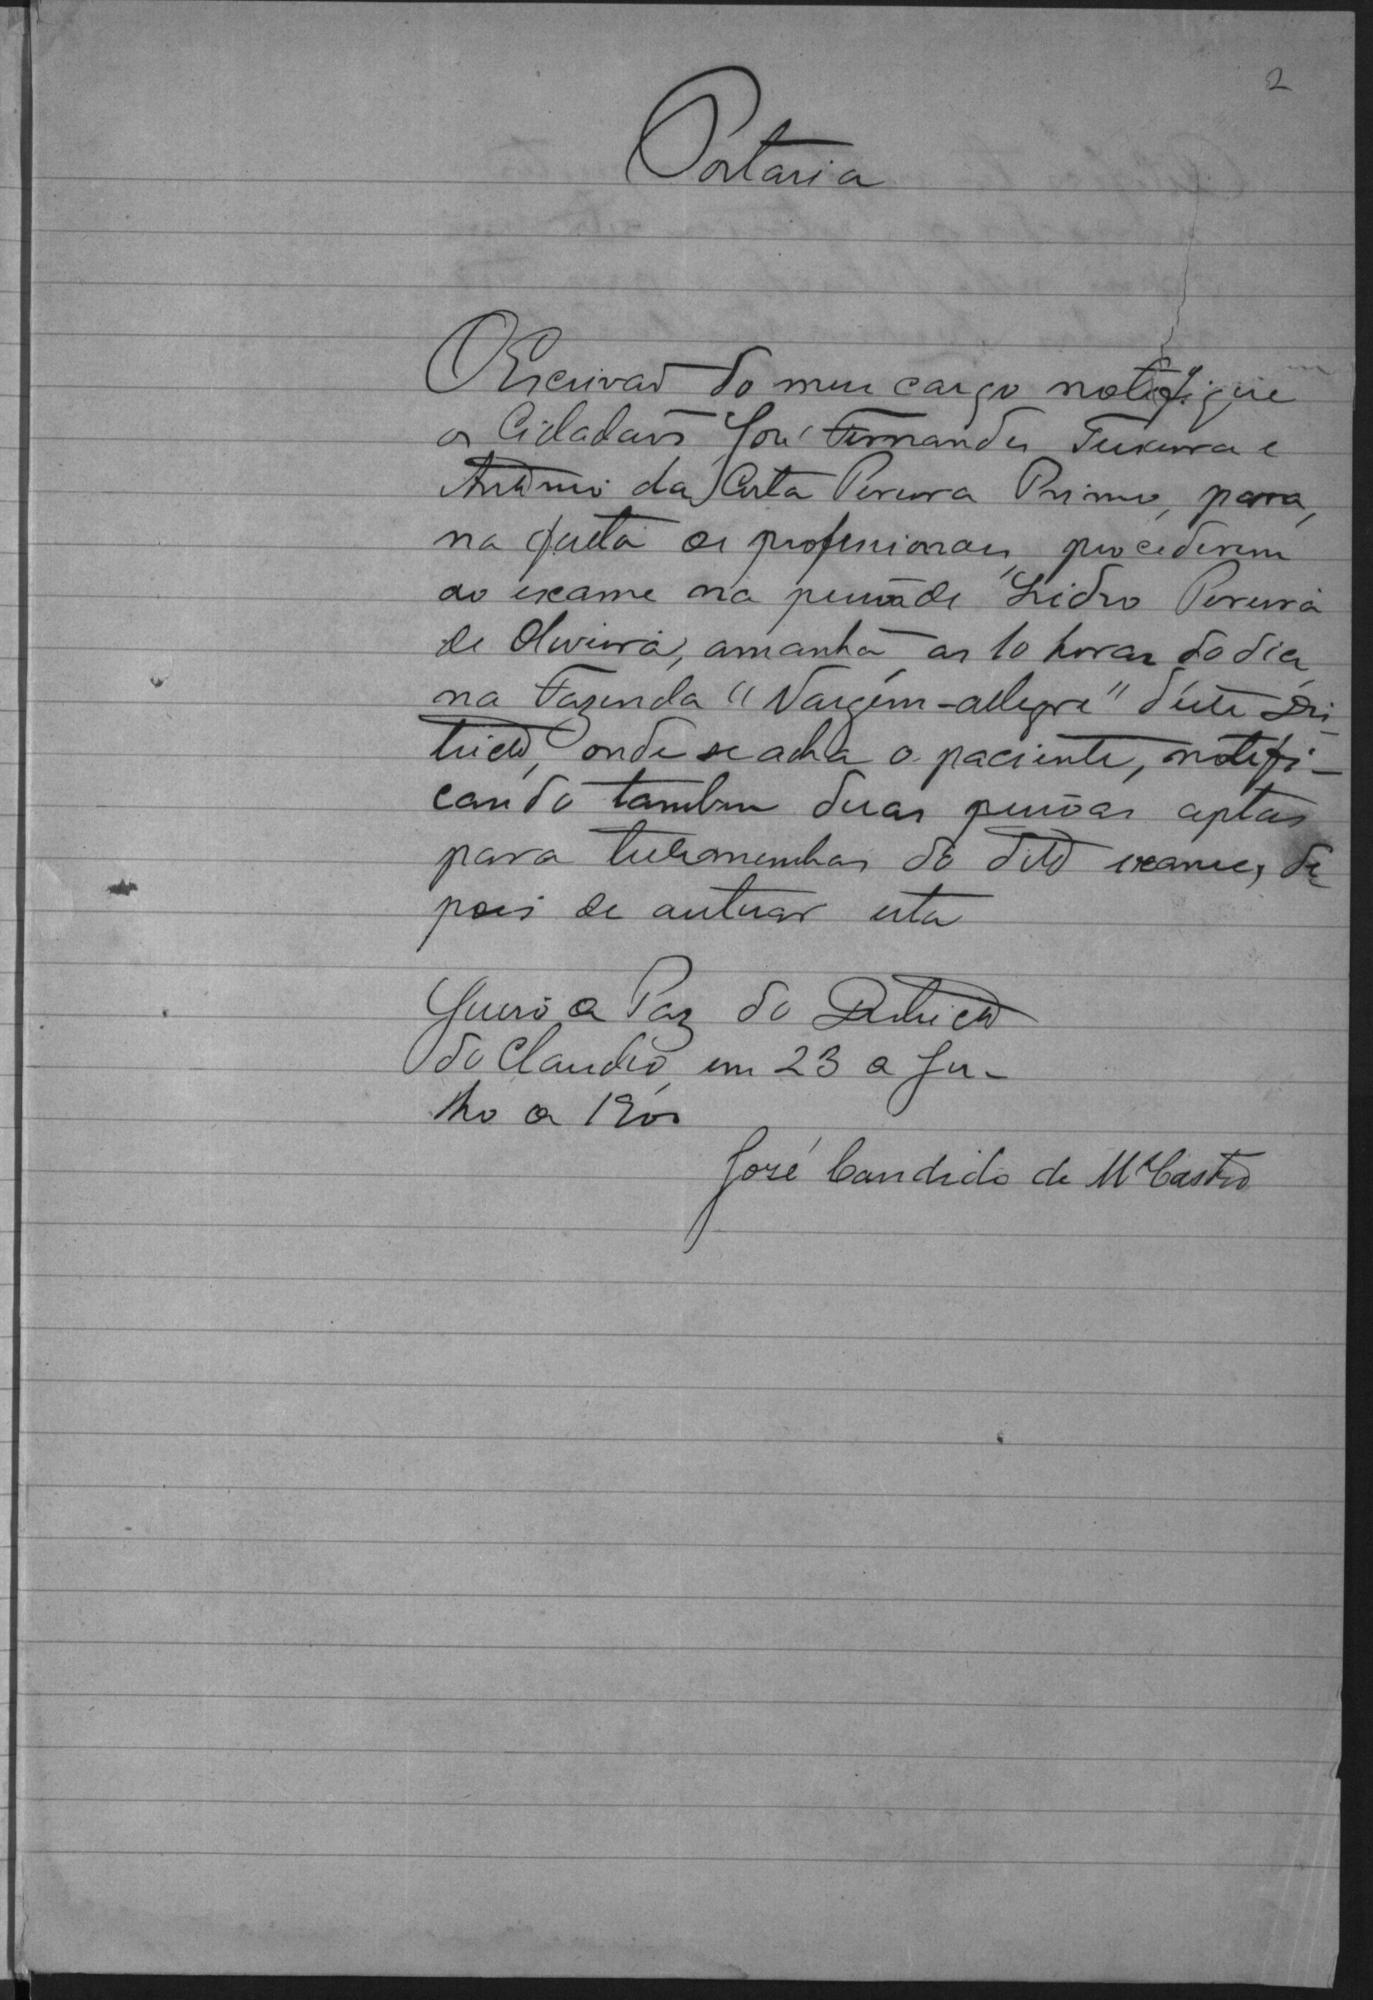 2
Portaria
O Escrivão do meu cargo notifique
os Cidadãos José Fernandes Teixeira e
Antonio da Costa Pereira Primo, para,
na falta de profissionaes, procederem
ao exame na pessôa de Isidro Pereira
de Oliveira, amanhã as 10 horas do dia,
na Fazenda "Vargem-alegre" d'este Dis-
tricto, onde se acha o paciente, notifi-
cando tambem duas pessôas aptas
para testemunhas do dito exame, de-
pois de autuar esta
Juiso de Paz do Districto
do Claudio, em 23 de Ju-
lho de 1900
José Candido de Mᵉˡ Castro